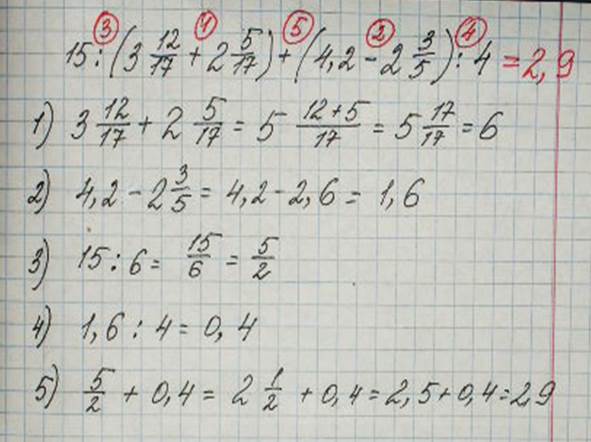 ③ ① ⑤ ② ④
15 : (3 12/17 + 2 5/17) + (4,2 - 2 3/5) : 4 = 2,9
1) 3 12/17 + 2 5/17 = 5 12+5/17 = 5 17/17 = 6
2) 4,2 - 2 3/5 = 4,2 - 2,6 = 1,6
3) 15 : 6 = 15/6 = 5/2
4) 1,6 : 4 = 0,4
5) 5/2 + 0,4 = 2 1/2 + 0,4 = 2,5 + 0,4 = 2,9